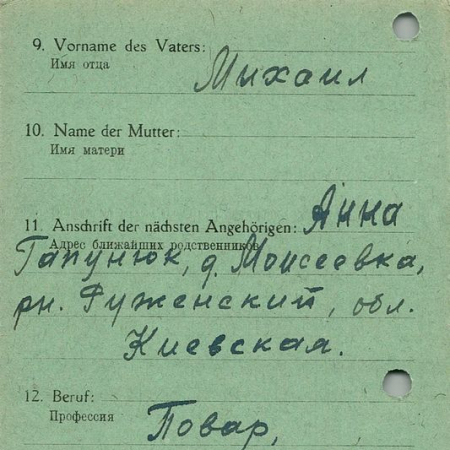 9. Vorname des Vaters:
Имя отца
Михаил
10. Name der Mutter:
Имя матери
11. Anschrift der nächsten Angehörigen: Анна
Адрес ближайших родственников
Гапунюк, д. Моисеевка,
рн. Руженский, обл.
Киевская.
12. Beruf:
Профессия
Повар,